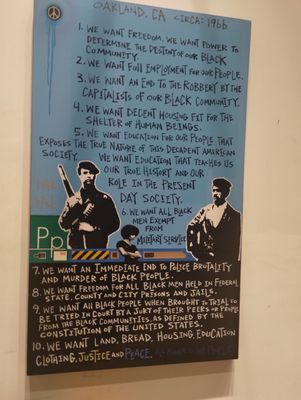 OAKLAND, CA CIRCA: 1966
1. WE WANT FREEDOM. WE WANT POWER TO
DETERMINE THE DESTINY OF OUR BLACK
COMMUNITY.
2. WE WANT FULL EMPLOYMENT FOR OUR PEOPLE.
3. WE WANT AN END TO THE ROBBERY BY THE
CAPITALISTS OF OUR BLACK COMMUNITY.
4. WE WANT DECENT HOUSING FIT FOR THE
SHELTER OF HUMAN BEINGS.
5. WE WANT EDUCATION FOR OUR PEOPLE THAT
EXPOSES THE TRUE NATURE OF THIS DECADENT AMERICAN
SOCIETY. WE WANT EDUCATION THAT TEACHES US
OUR TRUE HISTORY AND OUR
ROLE IN THE PRESENT
DAY SOCIETY.
6. WE WANT ALL BLACK
MEN EXEMPT
FROM
MILITARY SERVICE
Pp
7. WE WANT AN IMMEDIATE END TO POLICE BRUTALITY
AND MURDER OF BLACK PEOPLE.
8. WE WANT FREEDOM FOR ALL BLACK MEN HELD IN FEDERAL
STATE, COUNTY AND CITY PRISONS AND JAILS.
9. WE WANT ALL BLACK PEOPLE WHEN BROUGHT TO TRIAL TO
BE TRIED IN COURT BY A JURY OF THEIR PEERS OR PEOPLE
FROM THE BLACK COMMUNITIES. AS DEFINED BY THE
CONSTITUTION OF THE UNITED STATES.
10. WE WANT LAND, BREAD, HOUSING, EDUCATION
CLOTHING, JUSTICE AND PEACE.